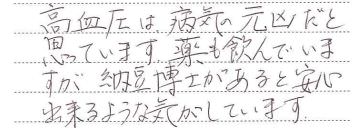 高血圧は病気の元凶だと
思っています.薬も飲んでいま
すが納豆博士があると安心
出来るような気がしています.